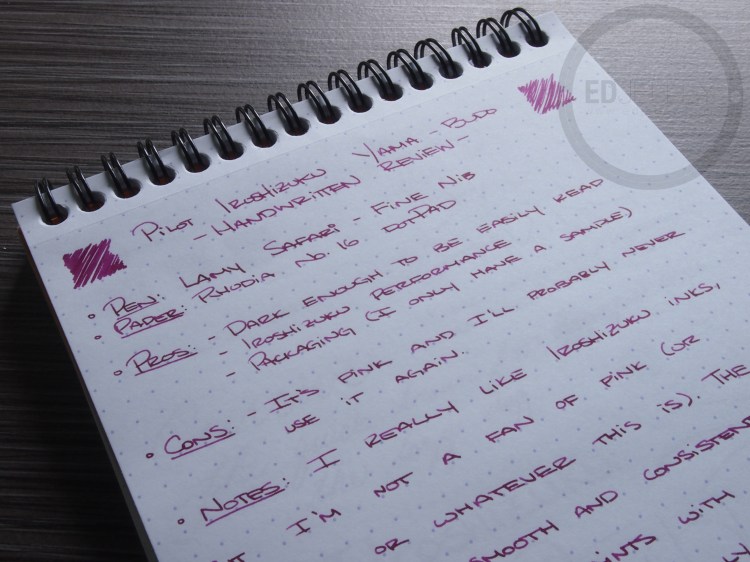 ED
PILOT IROSHIZUKU YAMA-BUDO
- HANDWRITTEN REVIEW -
• PEN: LAMY SAFARI - FINE NIB
• PAPER: RHODIA NO. 16 DOTPAD
• PROS: - DARK ENOUGH TO BE EASILY READ
- IROSHIZUKU PERFORMANCE
- PACKAGING (I ONLY HAVE A SAMPLE)
• CONS: - IT'S PINK AND I'LL PROBABLY NEVER
USE IT AGAIN.
• NOTES: I REALLY LIKE IROSHIZUKU INKS,
I'M NOT A FAN OF PINK (OR
OR WHATEVER THIS IS). THE
SMOOTH AND CONSISTEN
WITH